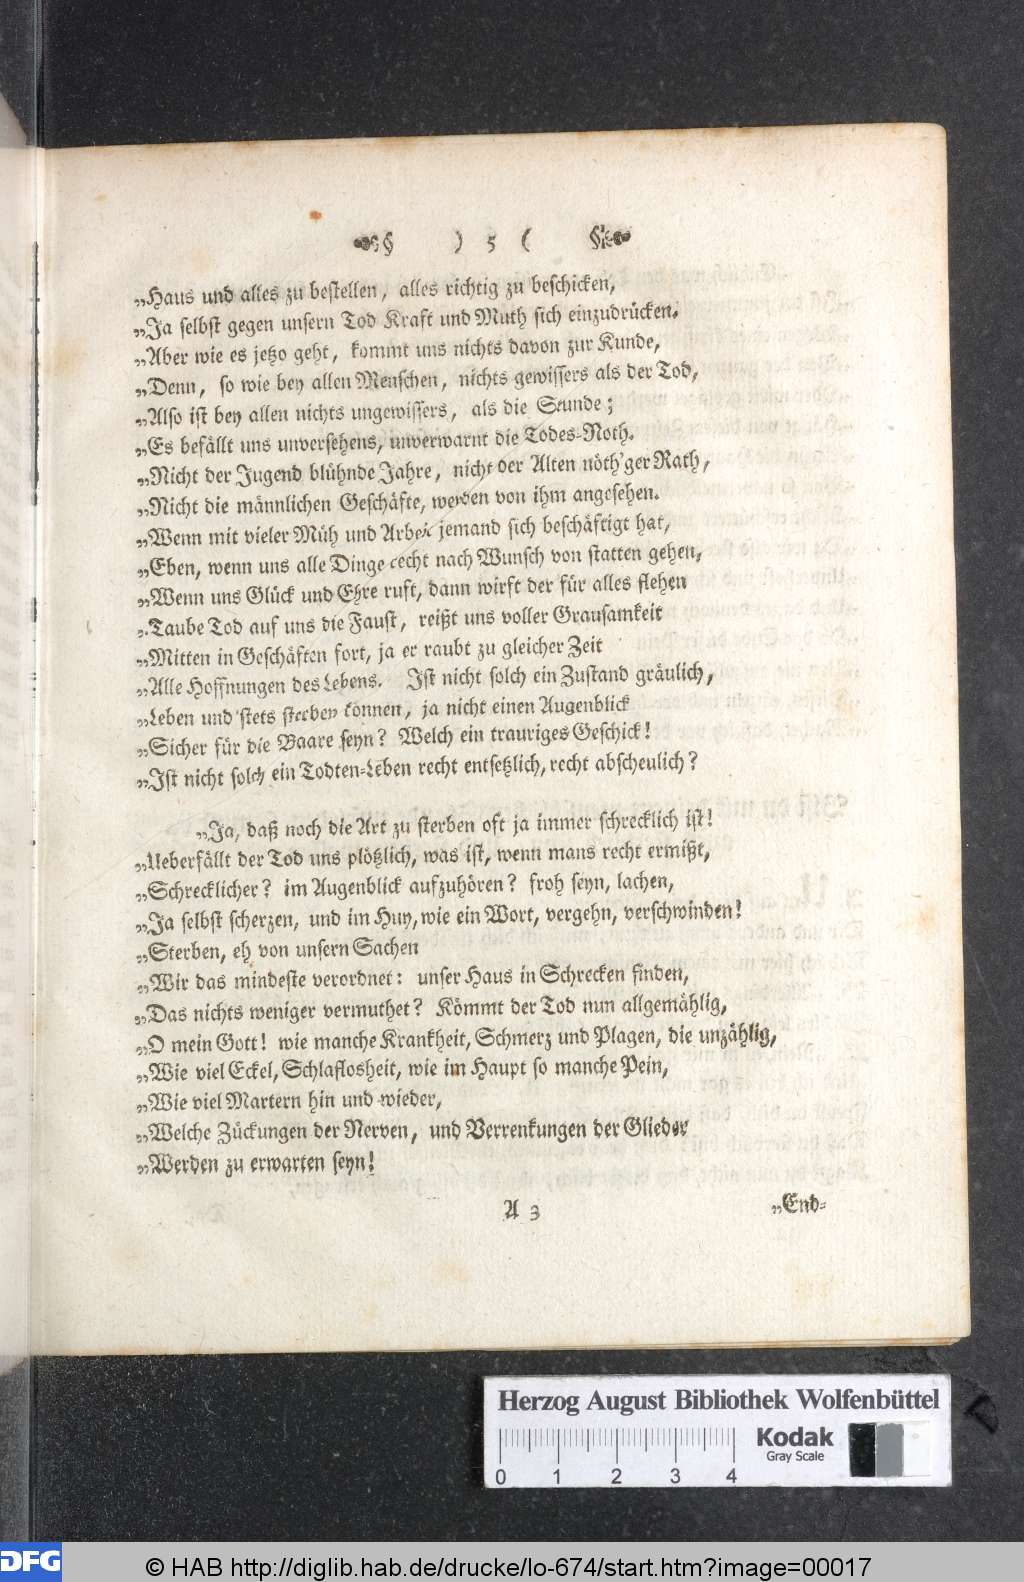 ) 5 (
„Haus und alles zu bestellen, alles richtig zu beschicken,
„Ja selbst gegen unsern Tod Kraft und Muth sich einzudrücken.
„Aber wie es jetzo geht, kommt uns nichts davon zur Kunde,
„Denn, so wie bey allen Menschen, nichts gewissers als der Tod,
„Also ist bey allen nichts ungewissers, als die Stunde;
„Es befällt uns unversehens, unverwarnt die Todes-Noth.
„Nicht der Jugend blühnde Jahre, nicht der Alten nöth'ger Rath,
„Nicht die männlichen Geschäfte, werden von ihm angesehen.
„Wenn mit vieler Müh und Arbeit jemand sich beschäftigt hat,
„Eben, wenn uns alle Dinge recht nach Wunsch von statten gehen,
„Wenn uns Glück und Ehre ruft, dann wirft der für alles flehen
„Taube Tod auf uns die Faust, reißt uns voller Grausamkeit
„Mitten in Geschäften fort, ja er raubt zu gleicher Zeit
„Alle Hoffnungen des Lebens. Ist nicht solch ein Zustand gräulich,
„Leben und stets sterben können, ja nicht einen Augenblick
„Sicher für die Baare seyn? Welch ein trauriges Geschick!
„Ist nicht solch ein Todten-Leben recht entsetzlich, recht abscheulich?
„Ja, daß noch die Art zu sterben oft ja immer schrecklich ist!
„Ueberfällt der Tod uns plötzlich, was ist, wenn mans recht ermißt,
„Schrecklicher? im Augenblick aufzuhören? froh seyn, lachen,
„Ja selbst scherzen, und im Huy, wie ein Wort, vergehn, verschwinden!
„Sterben, eh von unsern Sachen
„Wir das mindeste verordnet: unser Haus in Schrecken finden,
„Das nichts weniger vermuthet? Kömmt der Tod nun allgemählig,
„O mein Gott! wie manche Krankheit, Schmerz und Plagen, die unzählig,
„Wie viel Eckel, Schlaflosheit, wie im Haupt so manche Pein,
„Wie viel Martern hin und wieder,
„Welche Zückungen der Nerven, und Verrenkungen der Glieder
„Werden zu erwarten seyn!
A 3 „End-
Herzog August Bibliothek Wolfenbüttel
0 1 2 3 4
Kodak
Gray Scale
DFG
© HAB http://diglib.hab.de/drucke/lo-674/start.htm?image=00017